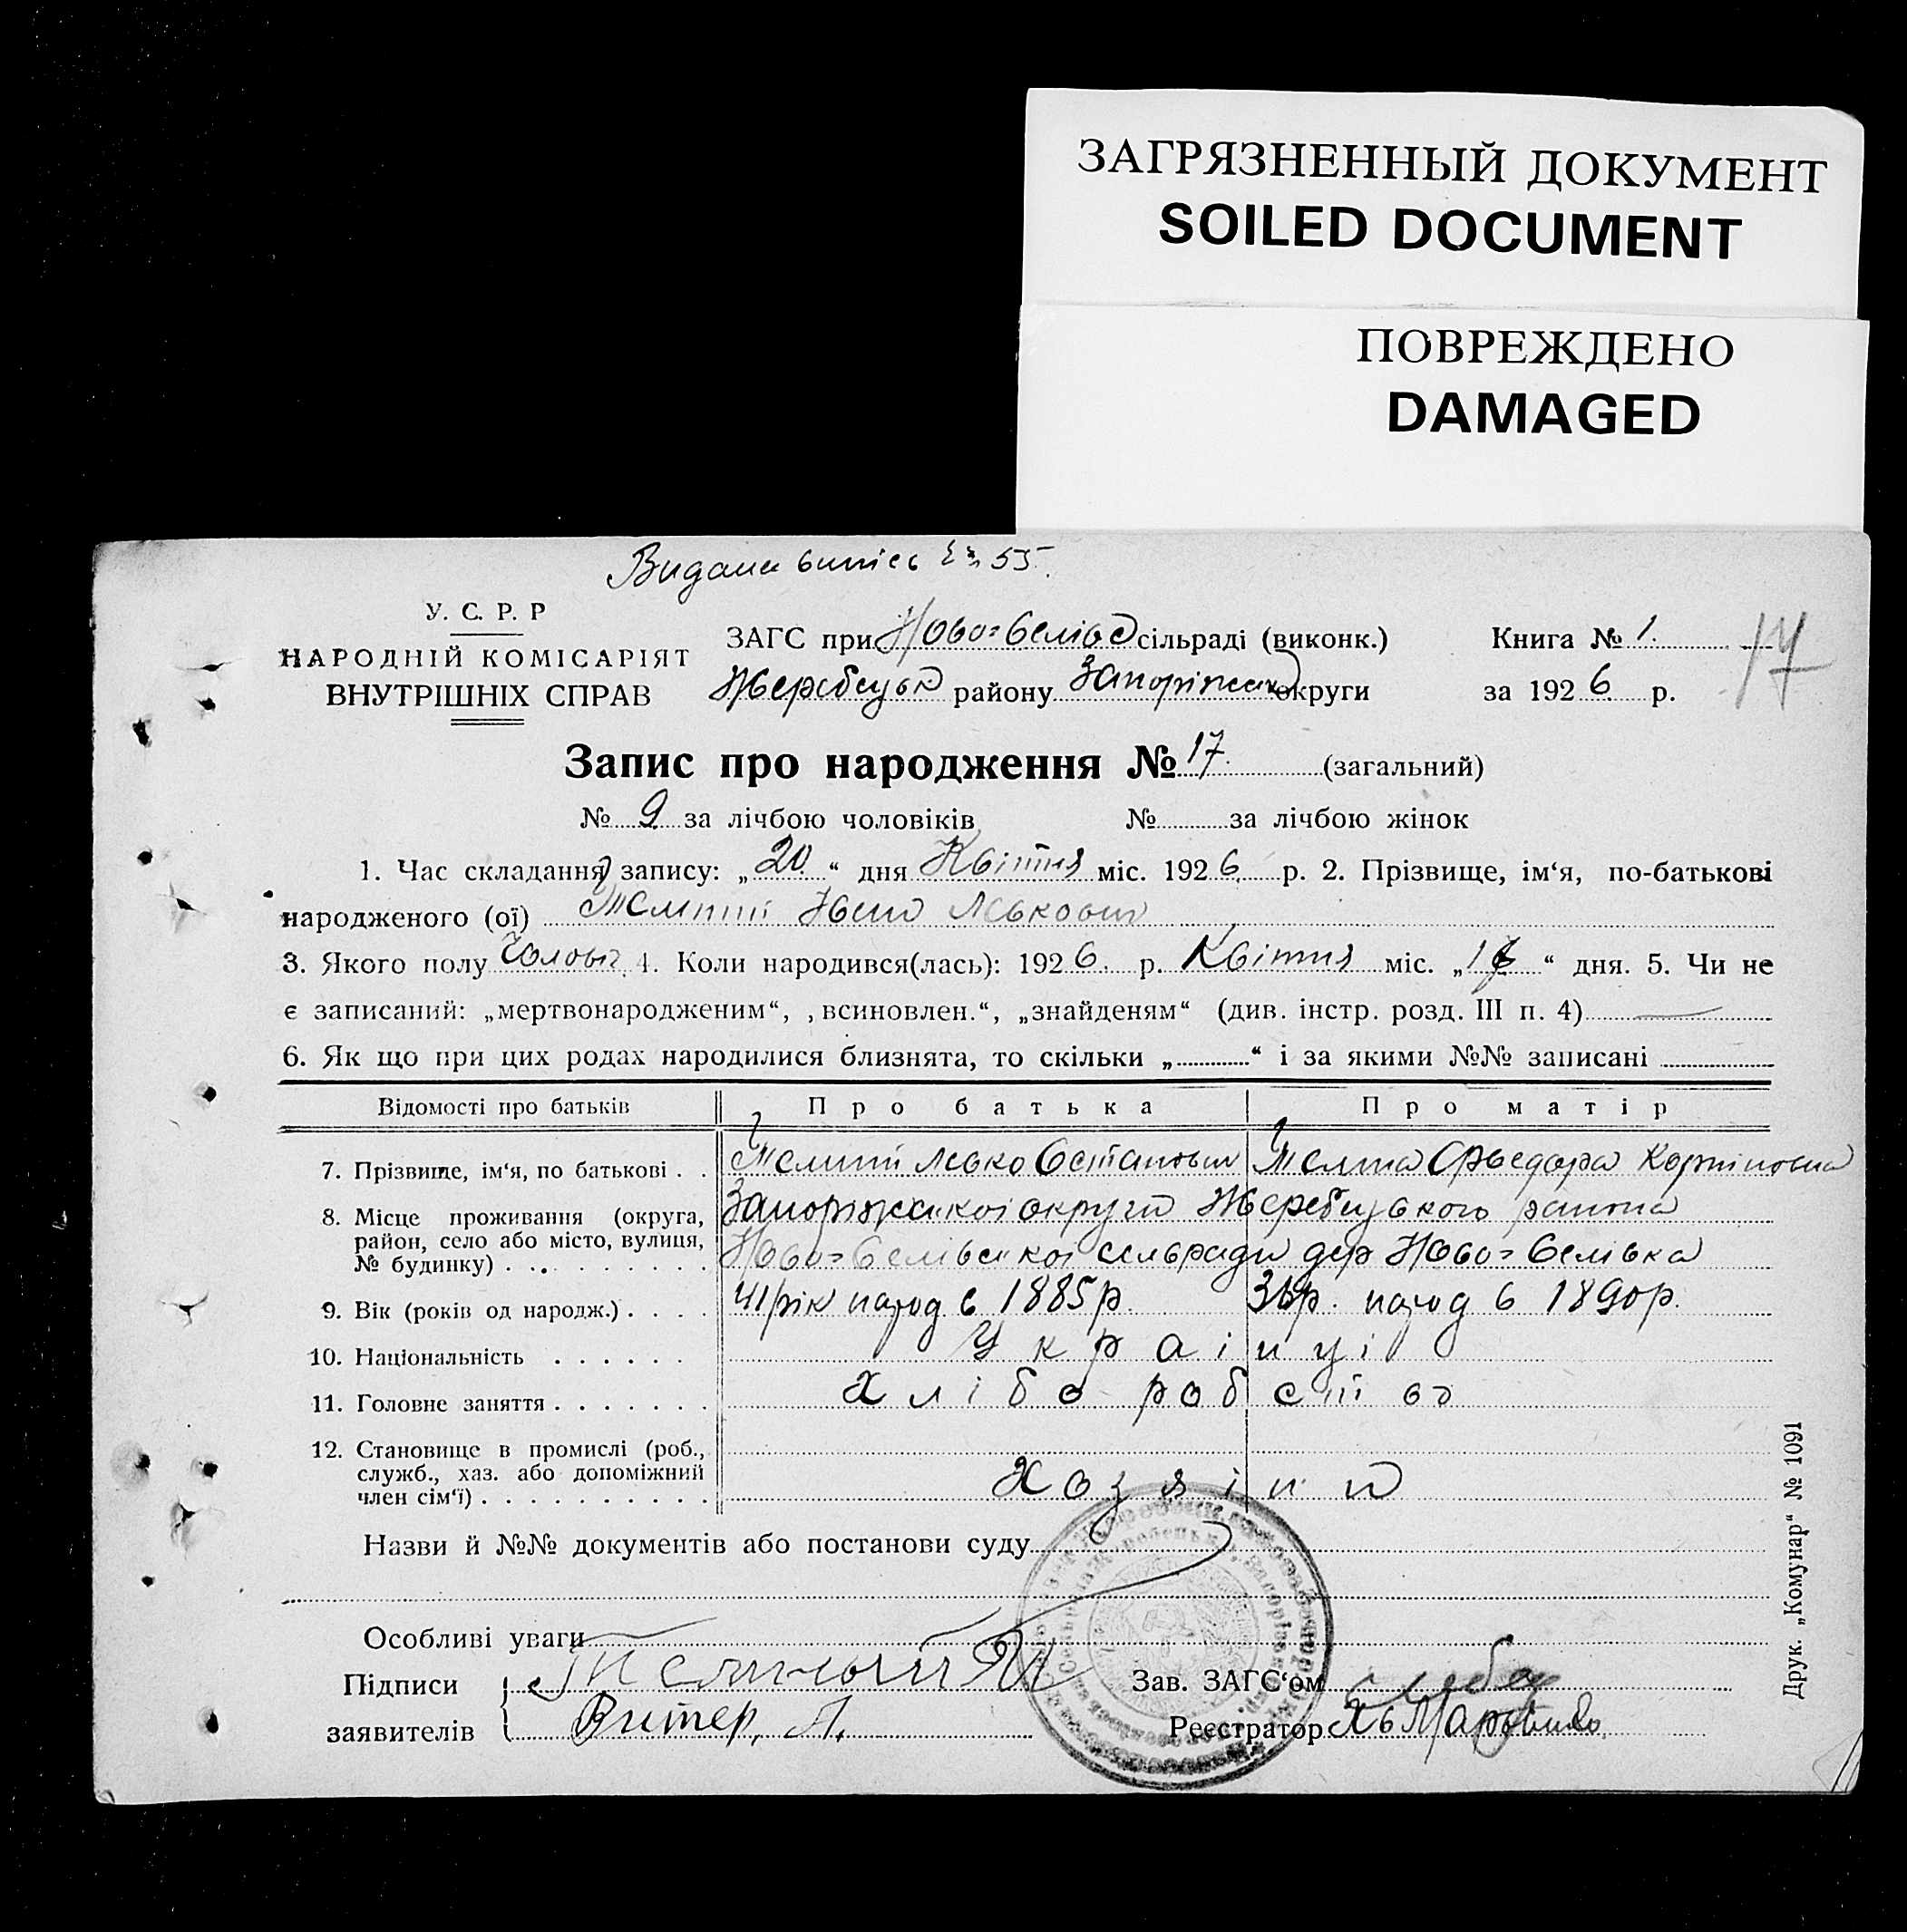 ЗАГРЯЗНЕННЫЙ ДОКУМЕНТ
SOILED DOCUMENT
ПОВРЕЖДЕНО
DAMAGED
Видана випісь 55.
У. С. Р. Р
НАРОДНІЙ КОМІСАРІЯТ
ВНУТРІШНІХ СПРАВ
ЗАГС при Ново-Селівс сільраді (виконк.)
Жеребецьк району Запоріжськ округи
Книга № 1.
за 1926 р.
17
Запис про народження № 17. (загальний)
№ 9 за лічбою чоловіків № за лічбою жінок
1. Час складання запису: „20“ дня Квітня міс. 1926 р. 2. Прізвище, ім‘я, по-батькові
народженого (ої) Левкович
3. Якого полу Чолов. 4. Коли народився(лась): 1926. р. Квітня міс. „ “ дня. 5. Чи не
є записаний: „мертвонародженим“, „всиновлен.“, „знайденям“ (див. інстр. розд. III п. 4)
6. Як що при цих родах народилися близнята, то скільки „ “ і за якими №№ записані
Відомості про батьків Про батька Про матір
7. Прізвище, ім‘я, по батькові . . Левко Остапович
8. Місце проживання (округа, район, село або місто, вулиця, № будинку) . . . Запоріжської округи Жеребецького района
Ново-Селівської сельради дер Ново-Селівка
9. Вік (років од народж.) . . . . 41 рік народ в 1885 р. народ в 1890 р.
10. Національність . . . . . . Українці
11. Головне заняття . . . . . . . хліборобство
12. Становище в промислі (роб., служб., хаз. або допоміжний член сім‘ї) . . . . . . . . . . хозяіни
Назви й №№ документів або постанови суду
Особливі уваги
Підписи
заявителів
Витер, Л.
Зав. ЗАГС‘ом
Реєстратор
Друк. „Комунар“ № 1091